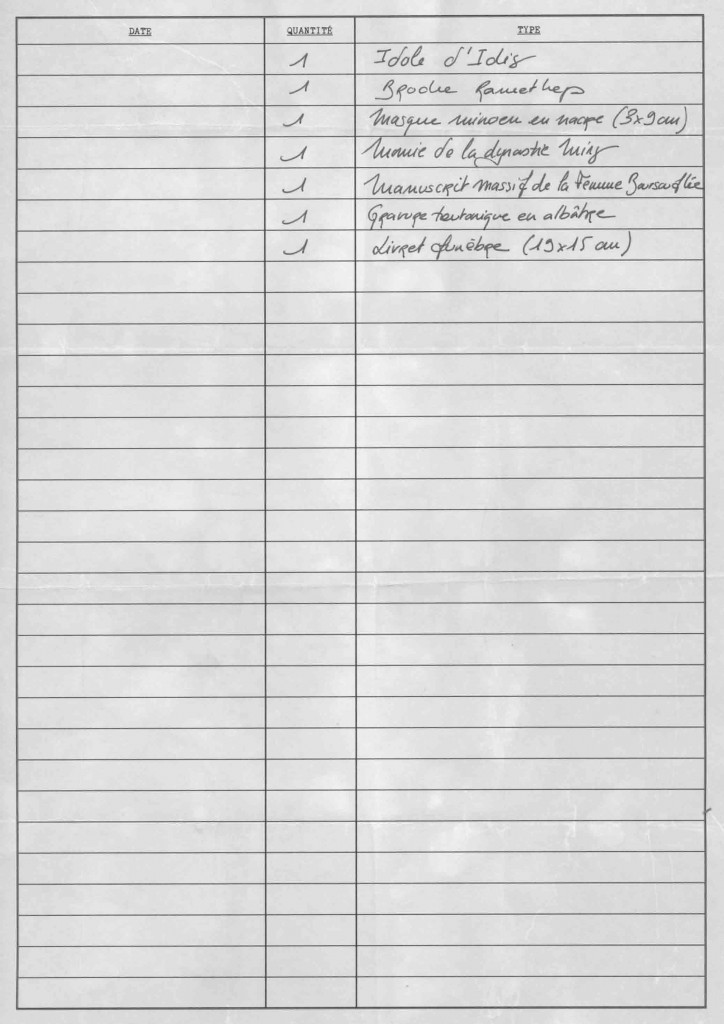 DATE QUANTITÉ TYPE
1 Idole d'Idis
1 Broche Ramethep
1 Masque minoen en nacre (3x9cm)
1 Momie de la dynastie Ming
1 Manuscrit massif de la Femme Boursouflée
1 Gravure teutonique en albâtre
1 Livret funèbre (19x15 cm)